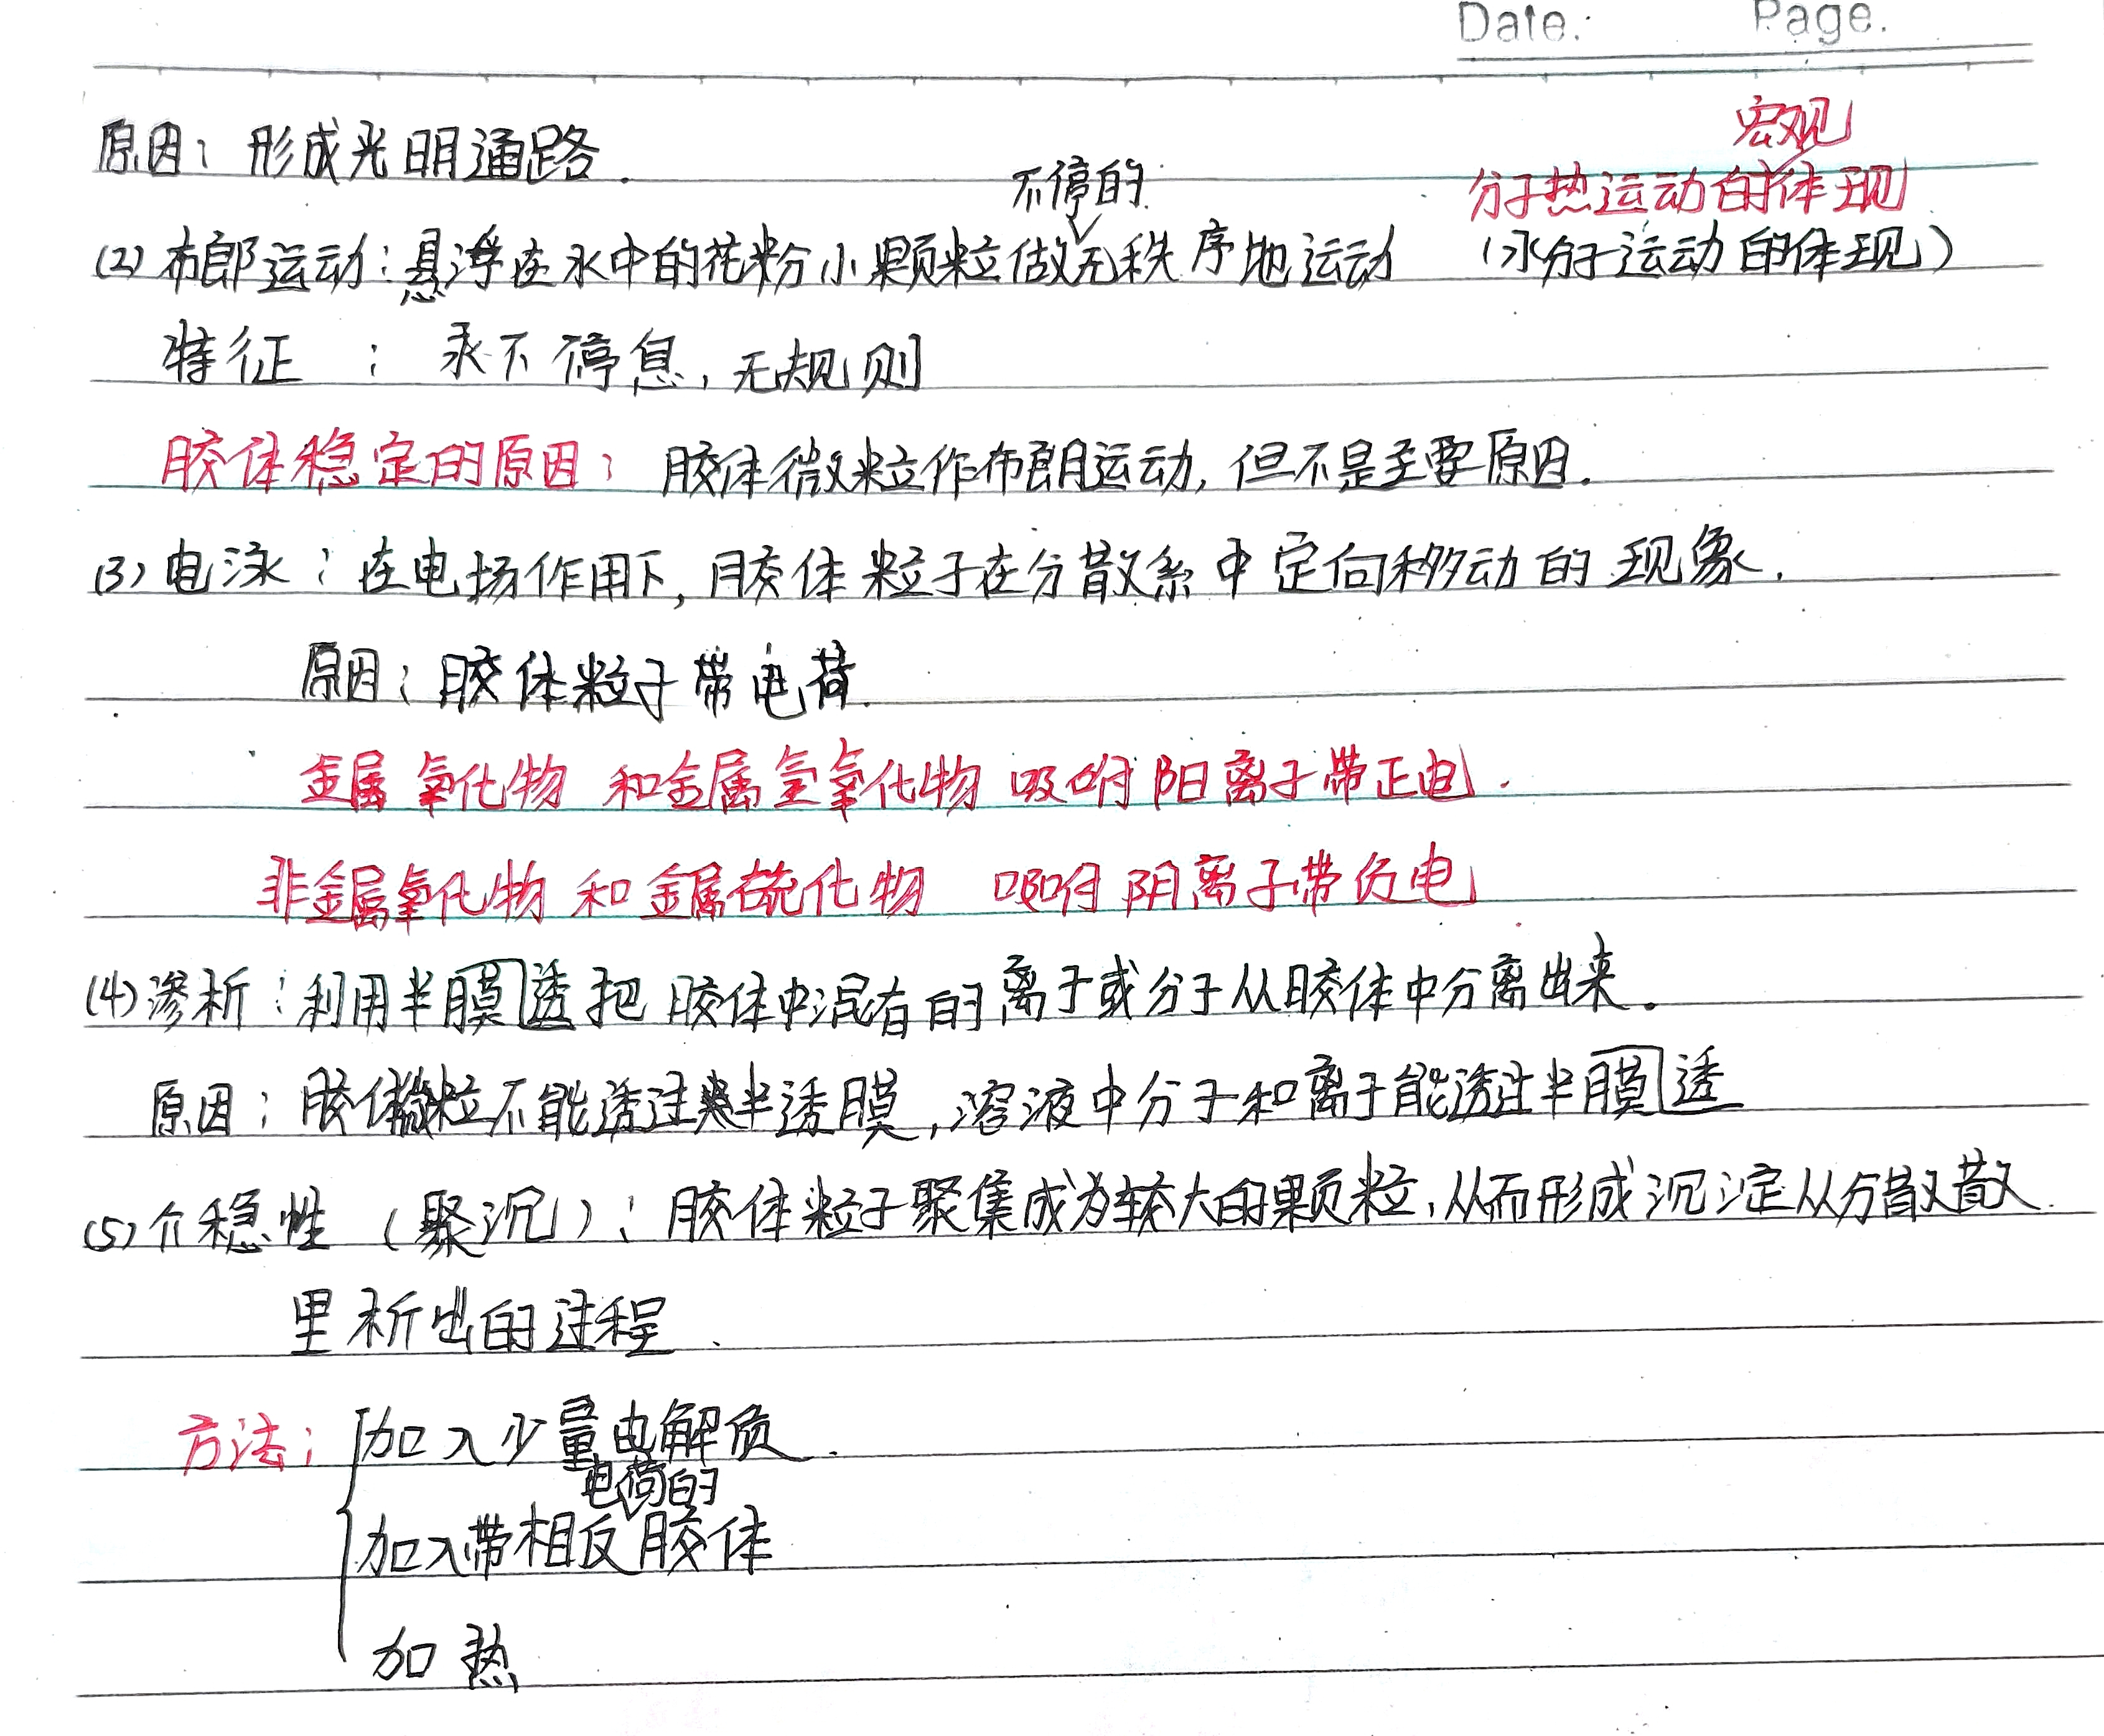 Date.: Page.
原因：形成光明通路.
宏观
分子热运动的体现
不停的
(2) 布郎运动：悬浮在水中的花粉小颗粒做无秩序地运动 （水分子运动的体现）
特征 ： 永不停息，无规则
胶体稳定的原因： 胶体微粒作布朗运动，但不是主要原因.
(3) 电泳：在电场作用下，胶体粒子在分散系中定向移动的现象.
原因：胶体粒子带电荷.
金属氧化物 和金属氢氧化物 吸附阳离子带正电.
非金属氧化物 和 金属硫化物 吸附阴离子带负电
(4) 渗析：利用半膜透把胶体中混有的离子或分子从胶体中分离出来。
原因：胶体微粒不能透过半透膜，溶液中分子和离子能透过半膜透
(5) 介稳性（聚沉）：胶体粒子聚集成为较大的颗粒，从而形成沉淀从分散散.
里析出的过程.
方法： 加入少量电解质.
电荷的
加入带相反胶体
加热